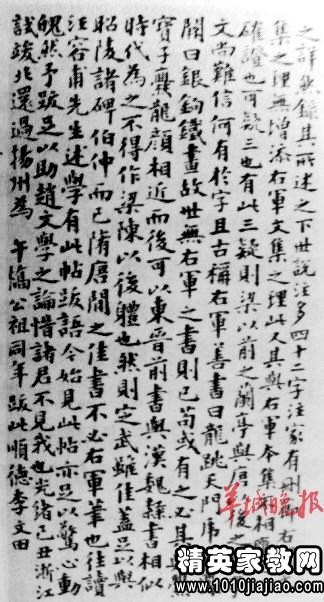 之詳然錄其所述之下世說注多四十二字注家有刪節右
集之理無增添右軍文集之理此又其與右軍本集不相應
確證也可疑三也有此三疑則梁以前之蘭亭與唐以後之
文尚難信何有於字且古稱右軍善書曰龍跳天門虎
闕曰銀鉤鐵畫故世無右軍之書則已苟或有之必其
寶子爨龍顏相近而後可以東晉前書與漢魏隸書相似
時代為之不得作梁陳以後體也然則定武雖佳蓋足以與
昭陵諸碑伯仲而已隋唐間之佳書不必右軍筆也往讀
汪容甫先生述學有此帖跋語今始見此帖亦足以驚心動
魄然予跋足以助趙文學之論惜諸君不見我也光緒己丑浙江
試竣北還過揚州為 午橋公祖同年跋此順德李文田
羊城晚报
精英家教网
http://www.1010jiajiao.com/